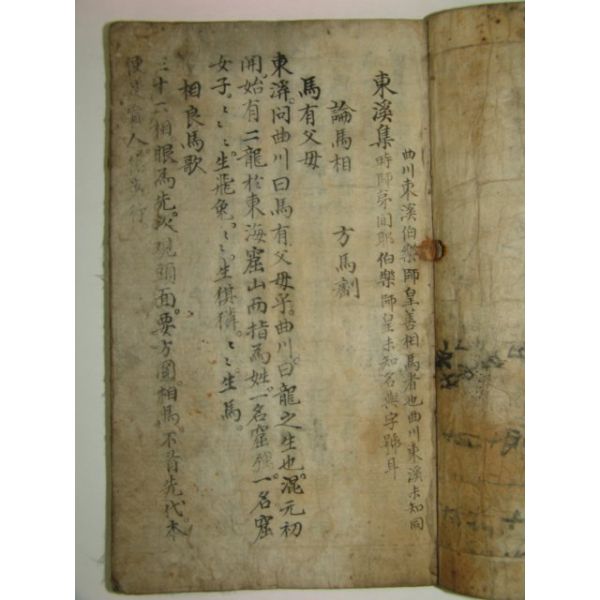 曲川東溪伯樂師皇善相馬者也曲川東溪未知同
東溪集時師弟間耶伯樂師皇未知名與字號耳
論馬相 方馬劑
馬有父母
東溪問曲川曰馬有父母乎曲川曰龍之生也混元初
開始有二龍於東海窟山西指為姓一名窟強一名窟
女子〻〻生飛兔〻〻生騏驎〻〻生馬
相良馬歌
三十二相眼為先次觀頭面要方圓相馬不看先代本
便是盲人信步行